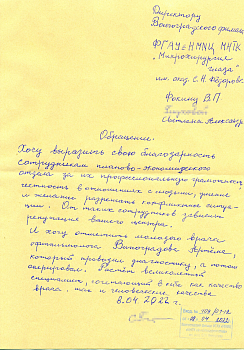 Директору
Волгоградского филиала
ФГАУ «НМИЦ МНТК
„Микрохирургия
глаза"
им. акад. С.Н. Фёдорова
Фокину В.П.
Светлана Александр
Обращение.
Хочу выразить свою благодарность
сотрудникам планово-экономического
отдела за их профессиональную грамотность,
честность в отношениях с людьми, знание
и желание разрешать конфликтные ситуа-
ции. От таких сотрудников зависит
репутация вашего центра.
И хочу отметить молодого врача-
офтальмолога Виноградова Артёма,
который проводил диагностику, а потом
оперировал. Растёт великолепный
специалист, сочетающий в себе как качества
врача, так и человеческие качества.
8.04.2022 г.